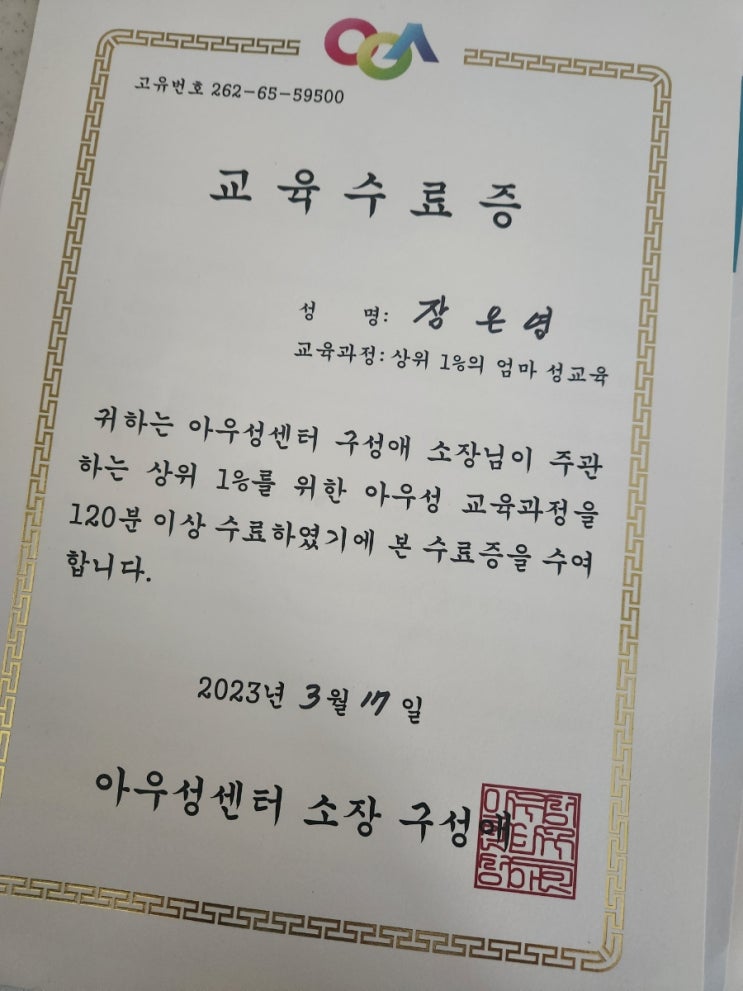 고유번호 262-65-59500
교육수료증
성 명: 장은영
교육과정: 상위 1%의 엄마 성교육
귀하는 아우성센터 구성애 소장님이 주관
하는 상위 1%를 위한 아우성 교육과정을
120분 이상 수료하였기에 본 수료증을 수여
합니다.
2023년 3월 17일
아우성센터 소장 구성애